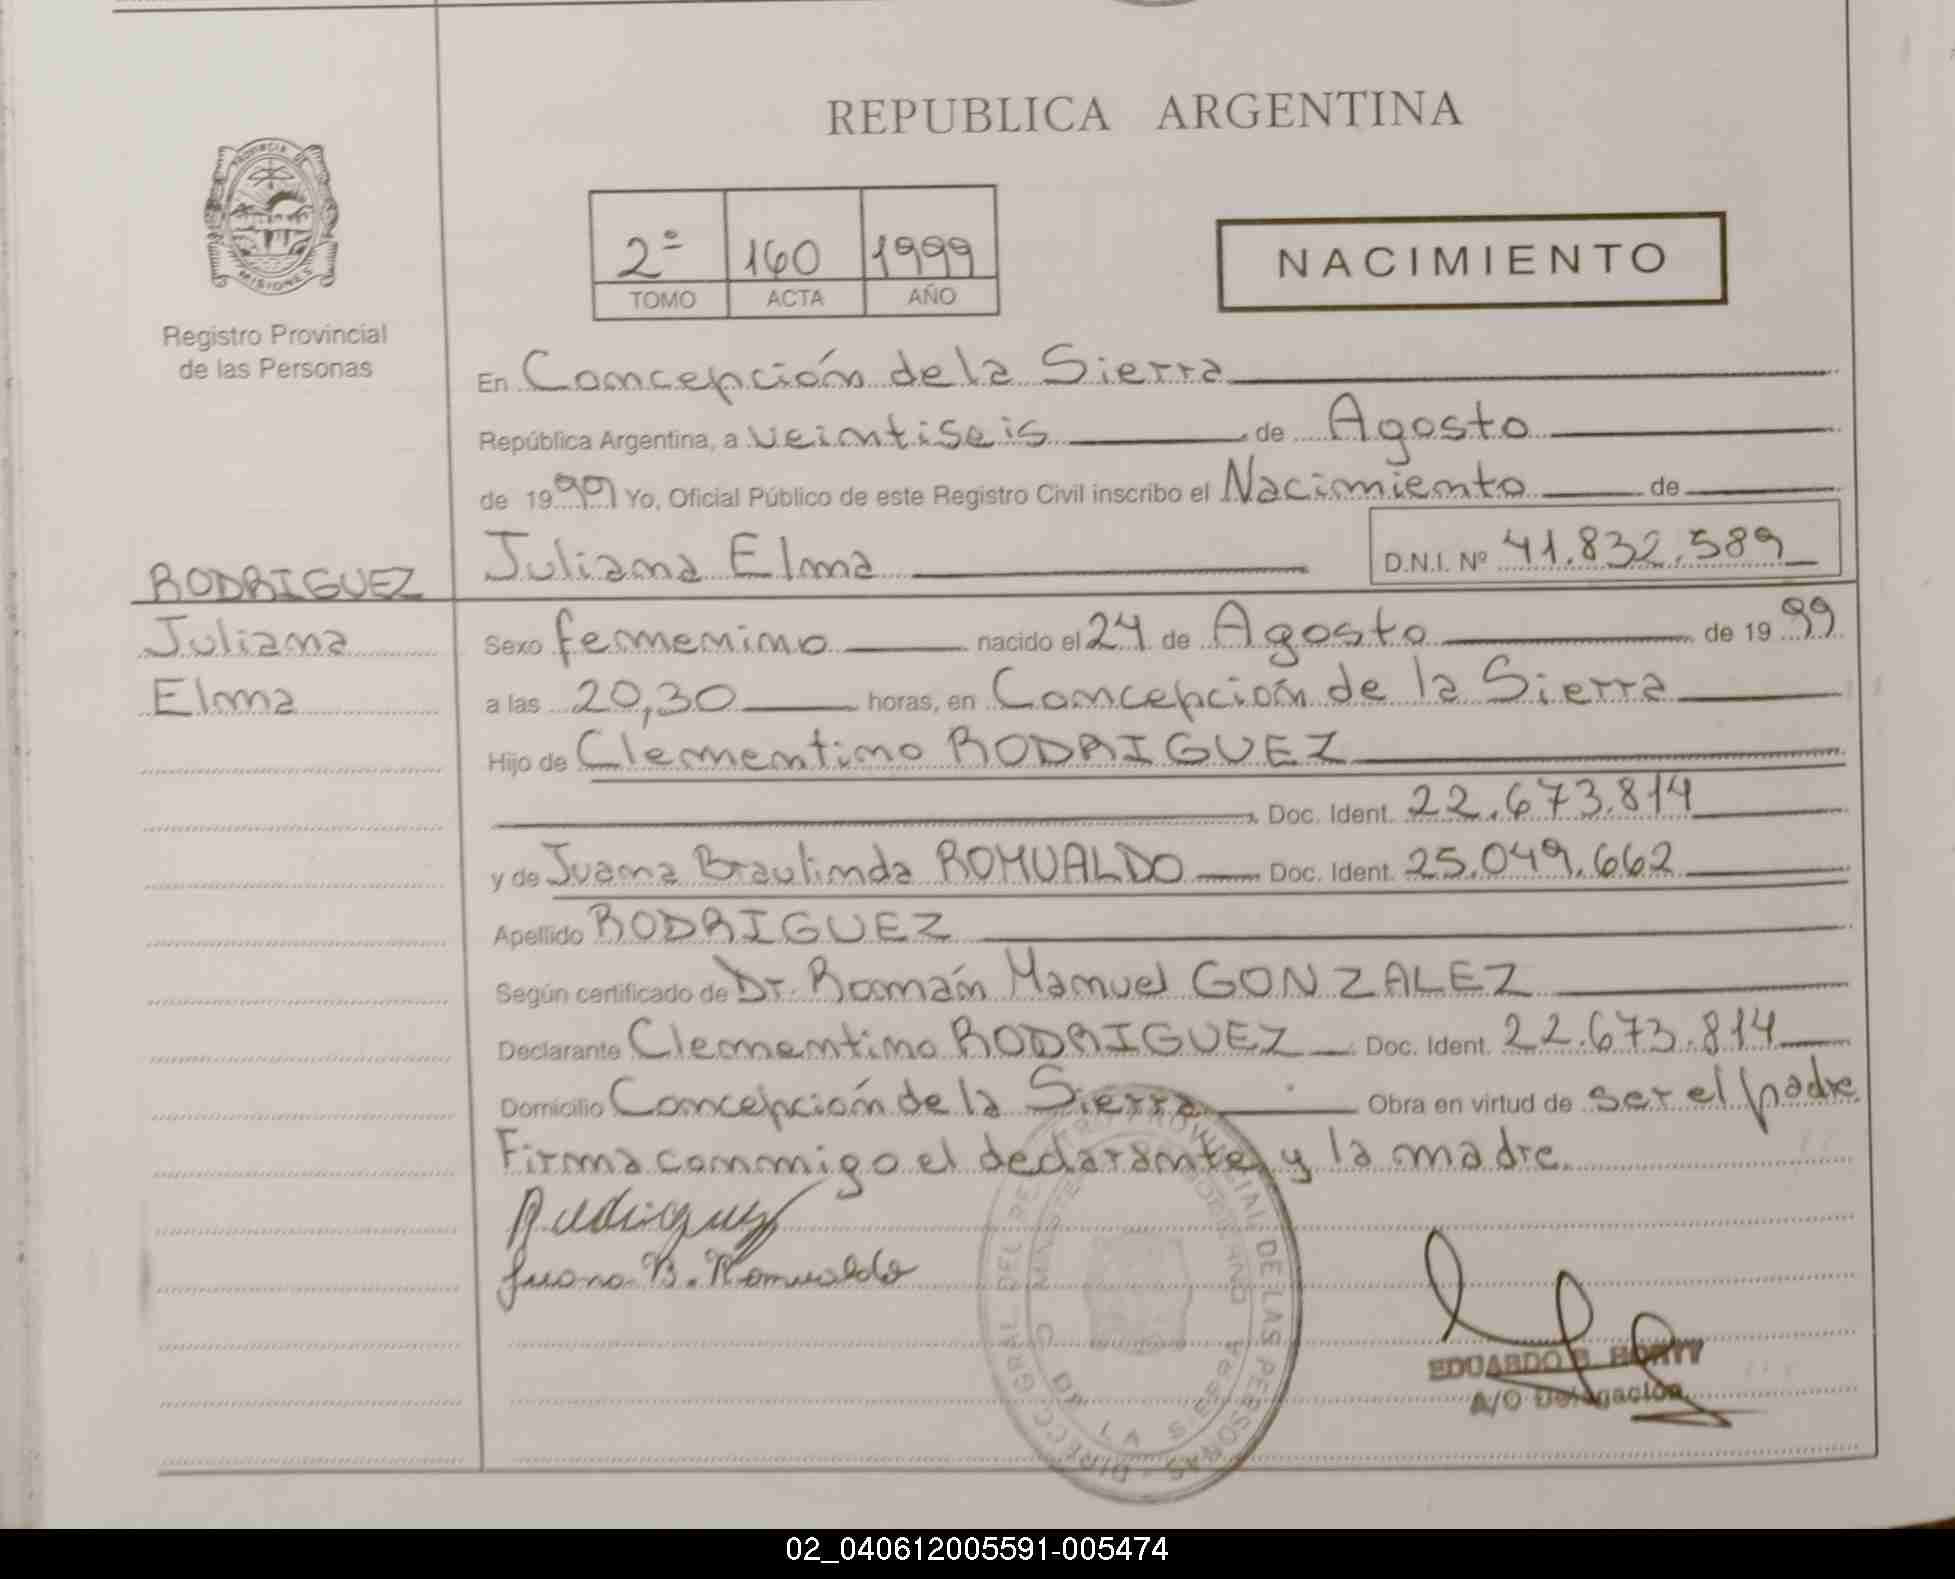 REPUBLICA ARGENTINA
PROVINCIA DE
MISIONES
Registro Provincial
de las Personas
2º 160 1999
TOMO ACTA AÑO
NACIMIENTO
En Concepción de la Sierra
República Argentina, a veintiseis de Agosto
de 1999 Yo, Oficial Público de este Registro Civil inscribo el Nacimiento de
Juliana Elma D.N.I. Nº 41.832.589
RODRIGUEZ
Juliana
Elma
Sexo femenino nacido el 24 de Agosto de 1999
a las 20,30 horas, en Concepción de la Sierra
Hijo de Clementino RODRIGUEZ
Doc. Ident. 22.673.814
y de Juana Braulinda ROMUALDO Doc. Ident. 25.049.662
Apellido RODRIGUEZ
Según certificado de Dr. Román Manuel GONZALEZ
Declarante Clementino RODRIGUEZ Doc. Ident. 22.673.814
Domicilio Concepción de la Sierra Obra en virtud de ser el padre
Firma conmigo el declarante y la madre.
Rudriguez
Juana B. Romualdo
DIRECC. GRAL. DEL REGISTRO PROVINCIAL DE LAS PERSONAS
DE LA SIERRA
EDUARDO
A/C Delegación
02_040612005591-005474